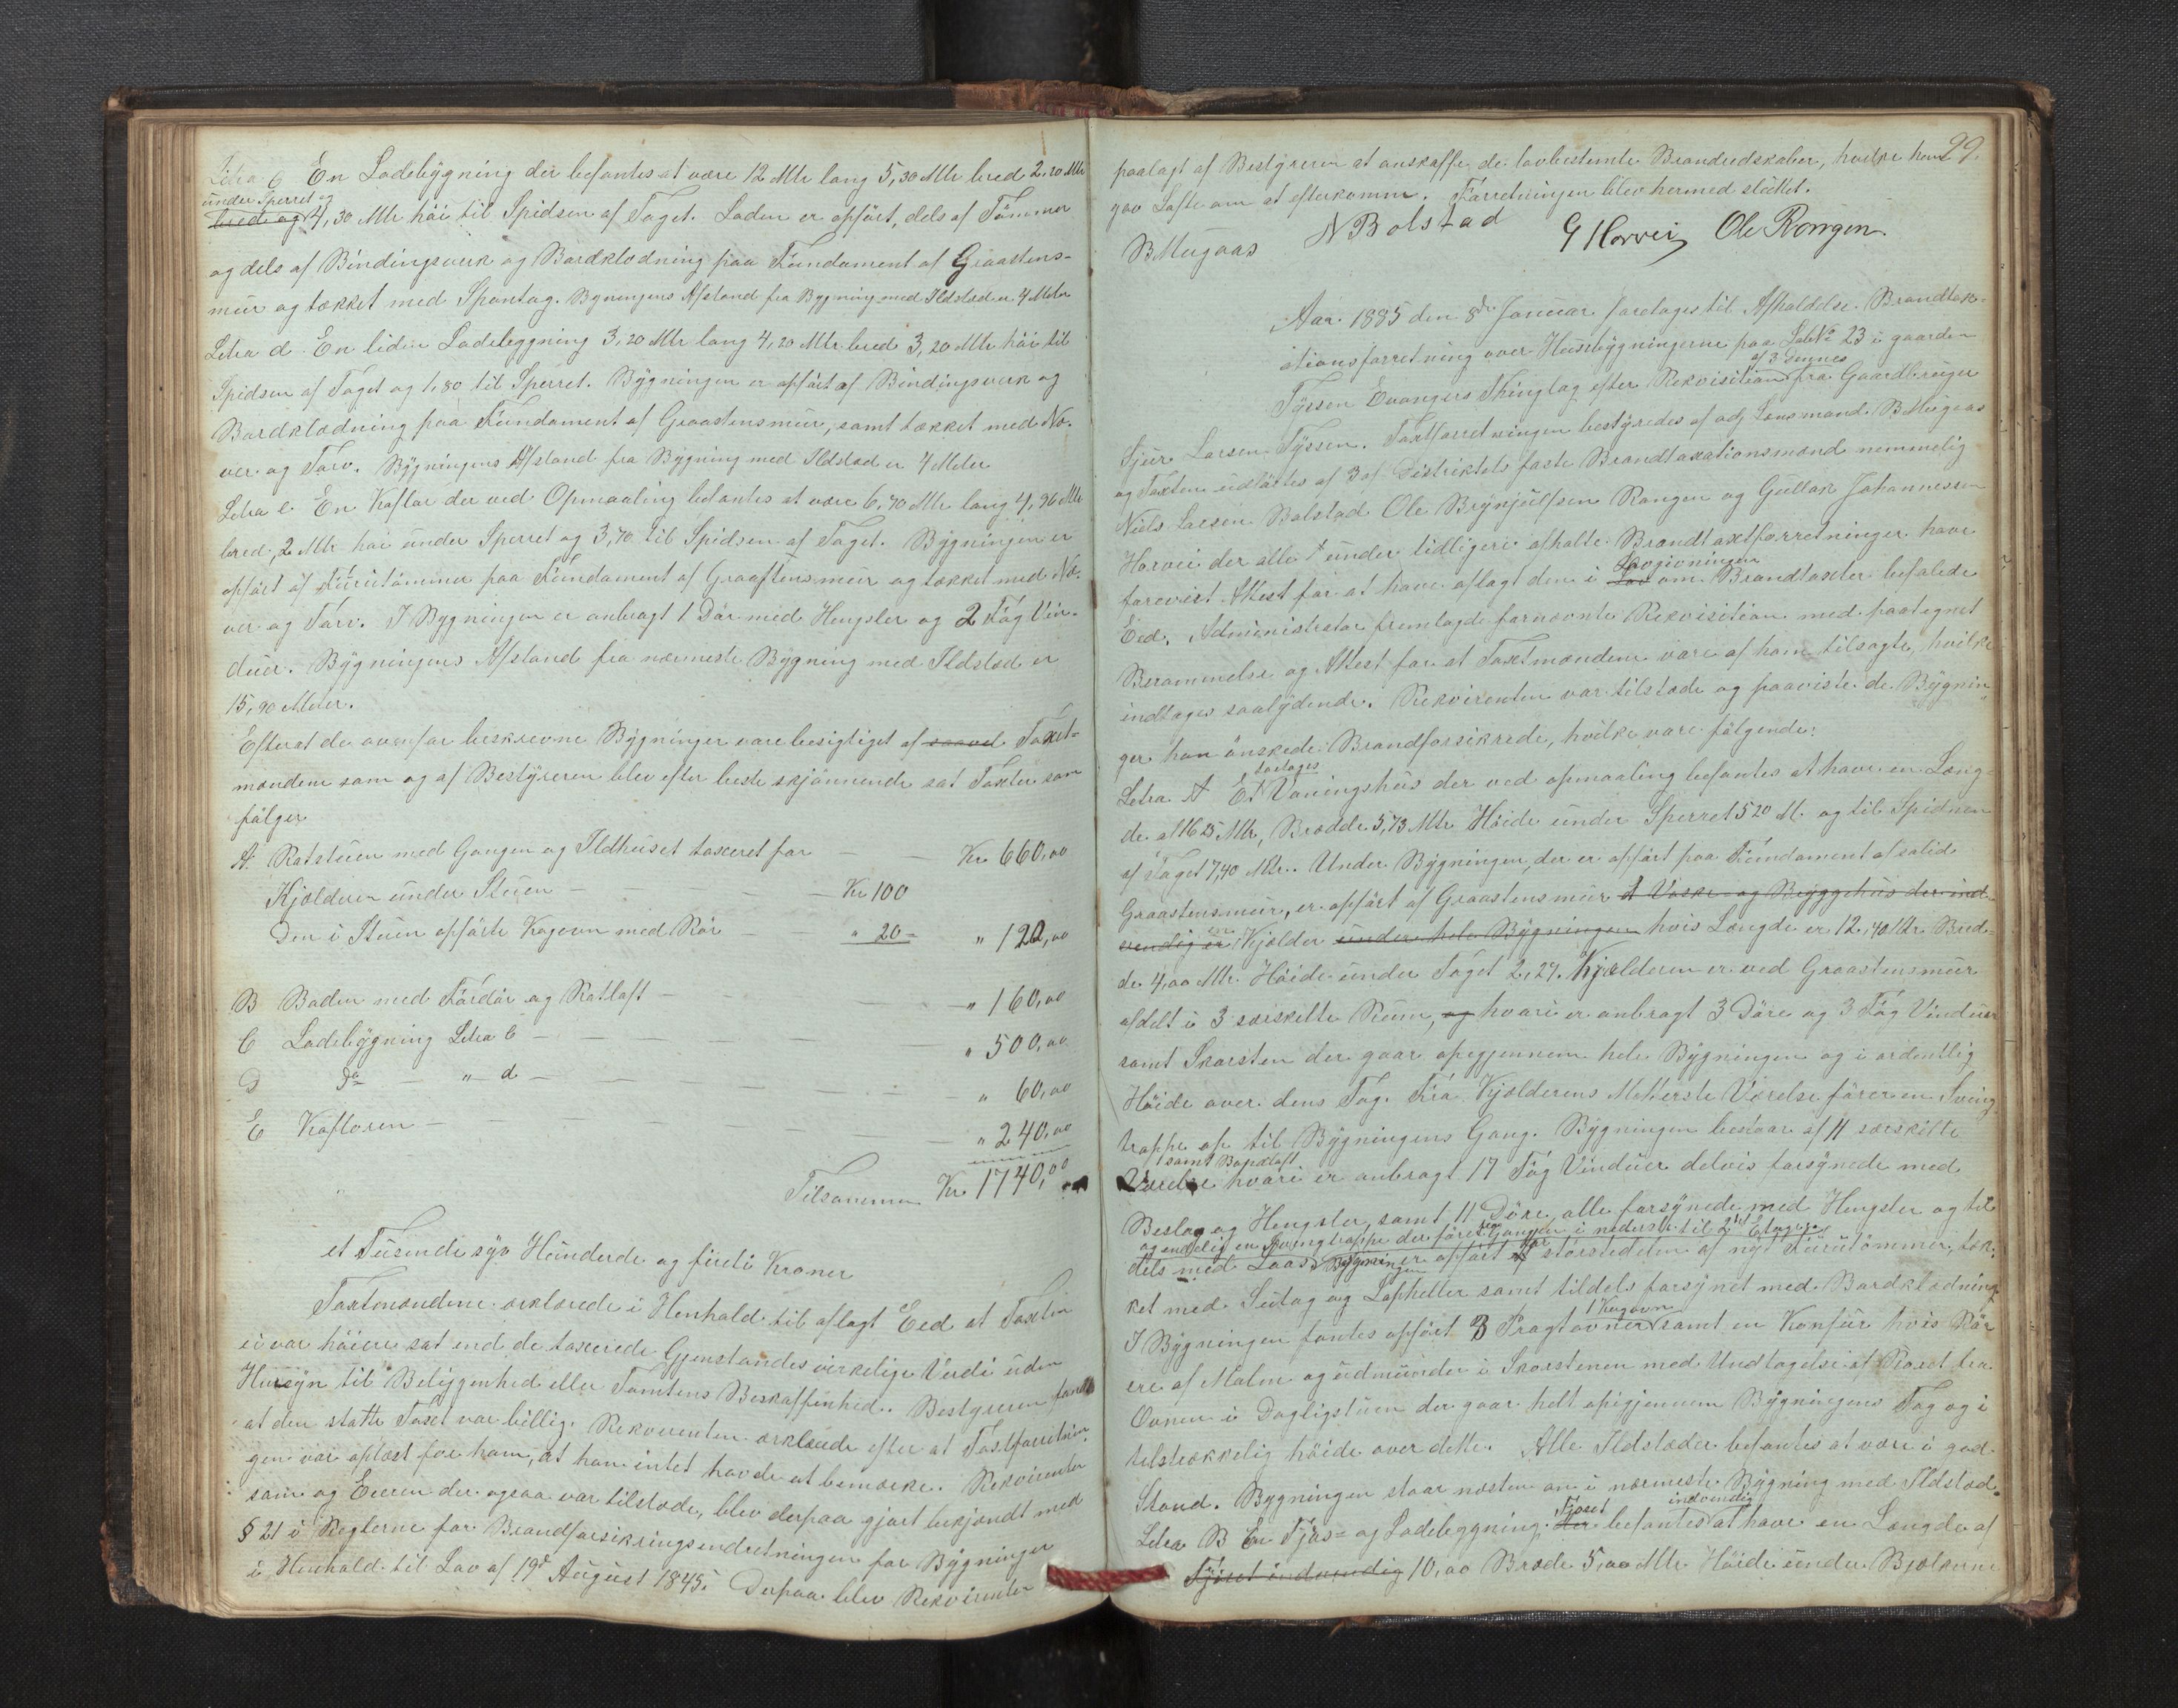 Litra C En Ladebÿgning der befantes at være 12 Mtr lang 5,30 Mtr bred 2,20 Mtr
under Sperret og
bred og 4,30 Mtr høi til Spidsen af Taget. Laden er opført, dels af Tømmer
og dels af Bindingsverk og Bordklædning paa Fundament af Graastens-
mur og tækket med Spontag. Bygningens Afstand fra Bygning med Ildsted er 4 Meter
Litra d. En liden Ladebygning 3,20 Mtr lang 4,20 Mtr bred 3,20 Mtr høi til
Spidsen af Taget og 1,80 til Sperret. Bygningen er opført af Bindingsverk og
Bordklædning paa Fundament af Graastensmur, samt tækket med Næ-
ver og Tørv. Bygningens Afstand fra Bygning med Ildsted er 4 Meter
Litra e. En Kaflar der ved Opmaaling befantes at være 6,70 Mtr lang 4,96 Mtr
bred, 2 Mtr høi under Sperret og 3,70 til Spidsen af Taget. Bygningen er
opført af Furutømmer paa Fundament af Graastensmur og tækket med Næ-
ver og Tørv. I Bygningen er anbragt 1 Dør med Hengsler og 2 Fag Vin-
duer. Bygningens Afstand fra nærmeste Bygning med Ildsted er
15,90 Meter.
Efterat de ovenfor beskrevne Bygninger vare besigtiget af saavel Taxt-
mændene som og af Bestyreren blev efter beste skjønnende sat Taxter som
følger
A. Ratstuen med Gangen og Ildhuset taxeret for — — Kr 660,00
Kjælderen under Stuen — — — — Kr 100
Den i Stuen opførte Kagovn med Rør — — " 20 = " 120,00
B Boden med Fordør og Ratloft — — — " 160,00
C Ladebÿgning Litra C — — — — " 500,00
D Do — " d — — — — " 60,00
E Kafloren — — — — — " 240,00
Tilsammen Kr. 1740,00
et Tusende syv Hundrede og firti Kroner
Taxtmændene erklærede i Henhold til aflagt Eed at Taxten
ei var høiere sat end de taxerede Gjenstandes virkelige Verdi uden
Hensyn til Beliggenhed eller Tomtens Beskaffenhed. Bestyreren fandt
at den satte Taxt var billig. Rekvirenten erklærede efter at Taxtforretnin-
gen var oplæst for ham, at han intet havde at bemærke. Rekvirenten
som og Eieren der ogsaa var tilstede, blev derpaa gjort bekjendt med
§ 21 i Reglerne for Brandforsikringsindretningen for Bygninger
i Henhold til Lov af 19de August 1845. Derpaa blev Rekvirenten
29.
paalagt af Bestyreren at anskaffe de lovbestemte Brandredskaber, hvilke han
gav Løfte om at efterkomme. Forretningen blev hermed sluttet.
BMugaas N Bolstad G Horvei Ole Rongen
Aar 1885 den 8de Januar foretages til Afholdelse Brandtax-
ationsforretning over Husebygningerne paa LøbNo 23 i gaarden
af 3 dennes
Tÿssen Evangers Thinglag efter Rekvisition fra Gaardbruger
Sjur Larsen Tÿssen. Taxtforretningen bestyredes af adj Lensmand BMugaas
og Taxten udførtes af 3 af Distriktets faste Brandtaxationsmænd nemmelig
Niels Larsen Bolstad Ole Brynjulfsen Rongen og Gullak Johannessen
Horvei der alle under tidligere afholte Brandtaxtforretninger have
Lovgivningen
forevist Attest for at have aflagt den i Lov om Brandtaxter befalede
Eed. Administrator fremlagde fornævnte Rekvisition med paategnet
Berammelse og Attest for at Taxtmændene vare af ham tilsagte, hvilke
indtages saalydende. Rekvirenten var tilstede og paaviste de Bygnin-
ger han ønskede Brandforsikrede, hvilke vare følgende:
toetages
Litra A Et Vaaningshus der ved opmaaling befantes at have en Læng-
de af 16,25 Mtr, Bredde 5,73 Mtr Høide under Sperret 5 20 M. og til Spidsen
af Taget 7,40 Mtr. Under Bygningen, der er opført paa Fundament af solid
Graastensmur, er opført af Graastensmur et Vaske og Bryggehus der ind-
en
vendig er Kjelder under hele Bygningen hvis Længde er 12,40 Mtr Bred-
de 4,00 Mtr. Høide under Taget 2,27. Kjælderen er ved Graastensmur
afdelt i 3 særskilte Rum, og hvori er anbragt 3 Døre og 3 Fag Vinduer
samt Skorsten der gaar opegjennem hele Bygningen og i ordentlig
Høide over dens Tag. Fra Kjælderens Mitterste Værelse fører en Sving
trappe op til Bygningens Gang. Bygningen bestaar af 11 særskilte
samt
Værelse hvori er anbragt 17 Fag Vinduer delvis forsynede med
Beslag og Hengsler, samt 11 Døre, alle forsynede med Hengsler og til
og endelig en Svingtrappe der fører fra Gangen i nederste til 2den Etage
dels med Laase. Bygningen er opført for størstedelen af nyt Furutømmer, tæk-
ket med Sutag og Lapheller samt tildels forsynet med Bordklædning
1 Kagovn
I Bygningen fantes opført 3 Pragtovner samt en Komfur hvis Rør
ere af Malm og udmunder i Skorstenen med Undtagelse af Røret fra
Ovnen i Dagligstuen der gaar helt opigjennem Bygningens Tag og i
tilstrækkelig høide over dette. Alle Ildsteder befantes at være i god
Stand. Bygningen staar næsten an i nærmeste Bygning med Ildsted.
Fjøset indvendig
Litra B En Fjøs- og Ladebygning. Der befantes at have en Længde af
Fjøset indvendig 10,00 Brede 5,00 Mtr Høide under Bjelkerne